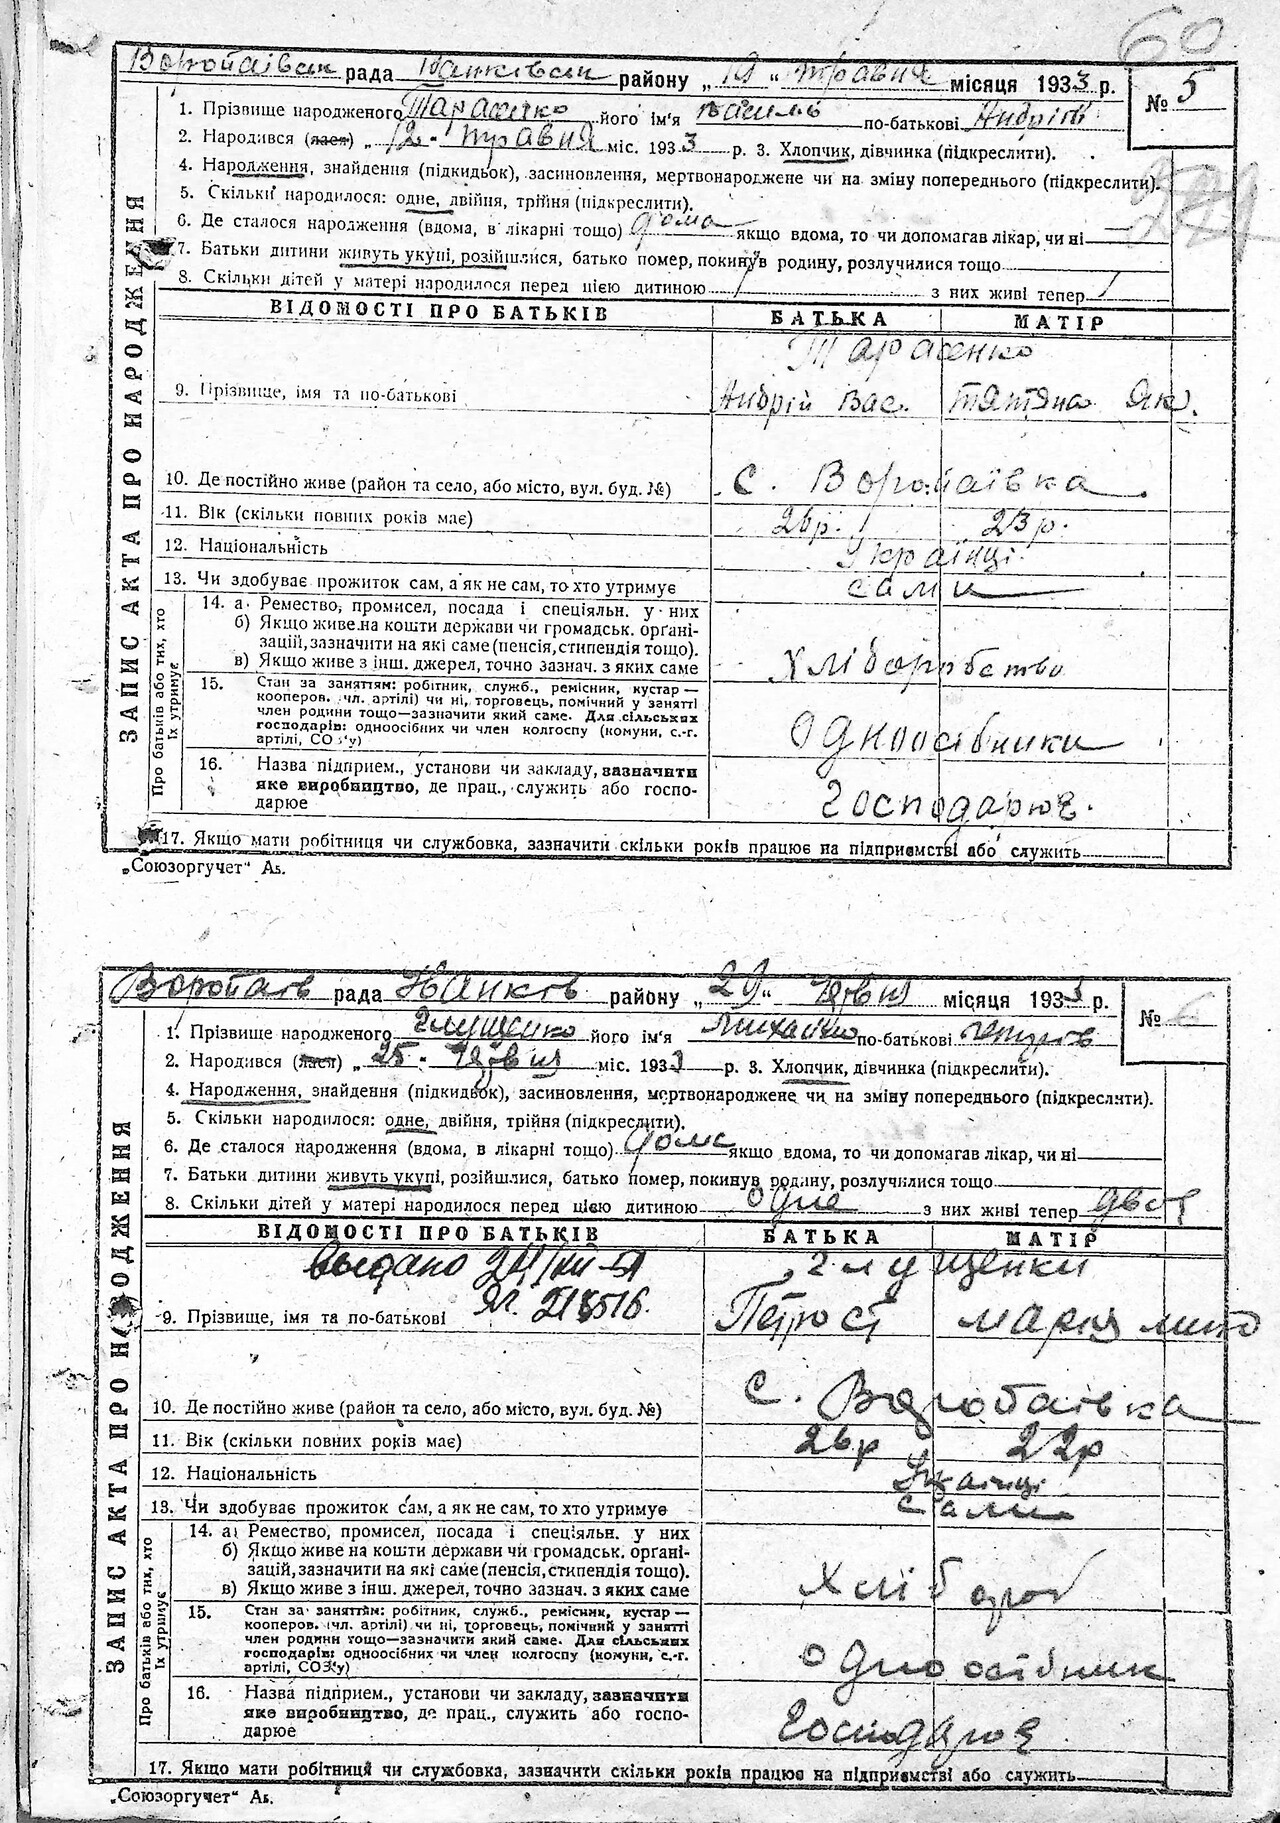 60
Воропаївськ рада Іванківськ району „19“ травня місяця 1933 р.
№ 5
1. Прізвище народженого Тарасенко його ім'я Василь по-батькові Андрій
2. Народився (лася) „ 12 - травня міс. 1933 р. 3. Хлопчик, дівчинка (підкреслити).
4. Народження, знайдення (підкидьок), засиновлення, мертвонароджене чи на зміну попереднього (підкреслити).
5. Скільки народилося: одне, двійня, трійня (підкреслити).
6. Де сталося народження (вдома, в лікарні тощо) дома якщо вдома, то чи допомагав лікар, чи ні
7. Батьки дитини живуть укупі, розійшлися, батько помер, покинув родину, розлучилися тощо
8. Скільки дітей у матері народилося перед цією дитиною / з них живі тепер /
ЗАПИС АКТА ПРО НАРОДЖЕННЯ
ВІДОМОСТІ ПРО БАТЬКІВ БАТЬКА МАТІР
Тарасенко
9. Прізвище, імя та по-батькові Андрій Вас. Тятяна Як.
10. Де постійно живе (район та село, або місто, вул. буд. №) с. Воропаївка
11. Вік (скільки повних років має) 26р. 23р.
12. Національність Українці
13. Чи здобуває прожиток сам, а як не сам, то хто утримує сами
Про батьків або тих, хто їх утримує
14. а) Ремество, промисел, посада і спеціяльн. у них
б) Якщо живе на кошти держави чи громадськ. орґані-
зацій, зазначити на які саме (пенсія, стипендія тощо).
в) Якщо живе з інш. джерел, точно зазнач. з яких саме
Хліборобство
15. Стан за заняттям: робітник, служб., ремісник, кустар —
кооперов. (чл. артілі) чи ні, торговець, помічний у занятті
член родини тощо—зазначити який саме. Для сільських
господарів: одноосібних чи член колгоспу (комуни, с.-г.
артілі, СОЗ'у)
Одноосібники
16. Назва підприєм., установи чи закладу, зазначити
яке виробництво, де прац., служить або госпо-
дарює
Господарює.
17. Якщо мати робітниця чи службовка, зазначити скільки років працює на підприємстві або служить
„Союзоргучет“ А5.
Воропаїв рада Іванків району „29“ червня місяця 1933 р.
№ 6
1. Прізвище народженого Глущенко його ім'я Михайло по-батькові Петров
2. Народився (лася) „ 25 - червня міс. 1933 р. 3. Хлопчик, дівчинка (підкреслити).
4. Народження, знайдення (підкидьок), засиновлення, мертвонароджене чи на зміну попереднього (підкреслити).
5. Скільки народилося: одне, двійня, трійня (підкреслити).
6. Де сталося народження (вдома, в лікарні тощо) дома якщо вдома, то чи допомагав лікар, чи ні
7. Батьки дитини живуть укупі, розійшлися, батько помер, покинув родину, розлучилися тощо
8. Скільки дітей у матері народилося перед цією дитиною одне з них живі тепер двоє
ЗАПИС АКТА ПРО НАРОДЖЕННЯ
ВІДОМОСТІ ПРО БАТЬКІВ БАТЬКА МАТІР
Выдано Глущенки
9. Прізвище, імя та по-батькові Петро Марія
10. Де постійно живе (район та село, або місто, вул. буд. №) с. Воропаївка
11. Вік (скільки повних років має) 26р 22р
12. Національність Українці
13. Чи здобуває прожиток сам, а як не сам, то хто утримує сами
Про батьків або тих, хто їх утримує
14. а) Ремество, промисел, посада і спеціяльн. у них
б) Якщо живе на кошти держави чи громадськ. орґані-
зацій, зазначити на які саме (пенсія, стипендія тощо).
в) Якщо живе з інш. джерел, точно зазнач. з яких саме
Хлібороб
15. Стан за заняттям: робітник, служб., ремісник, кустар —
кооперов. (чл. артілі) чи ні, торговець, помічний у занятті
член родини тощо—зазначити який саме. Для сільських
господарів: одноосібних чи член колгоспу (комуни, с.-г.
артілі, СОЗ'у)
одноосібник
16. Назва підприєм., установи чи закладу, зазначити
яке виробництво, де прац., служить або госпо-
дарює
Господарює
17. Якщо мати робітниця чи службовка, зазначити скільки років працює на підприємстві або служить
„Союзоргучет“ А5.